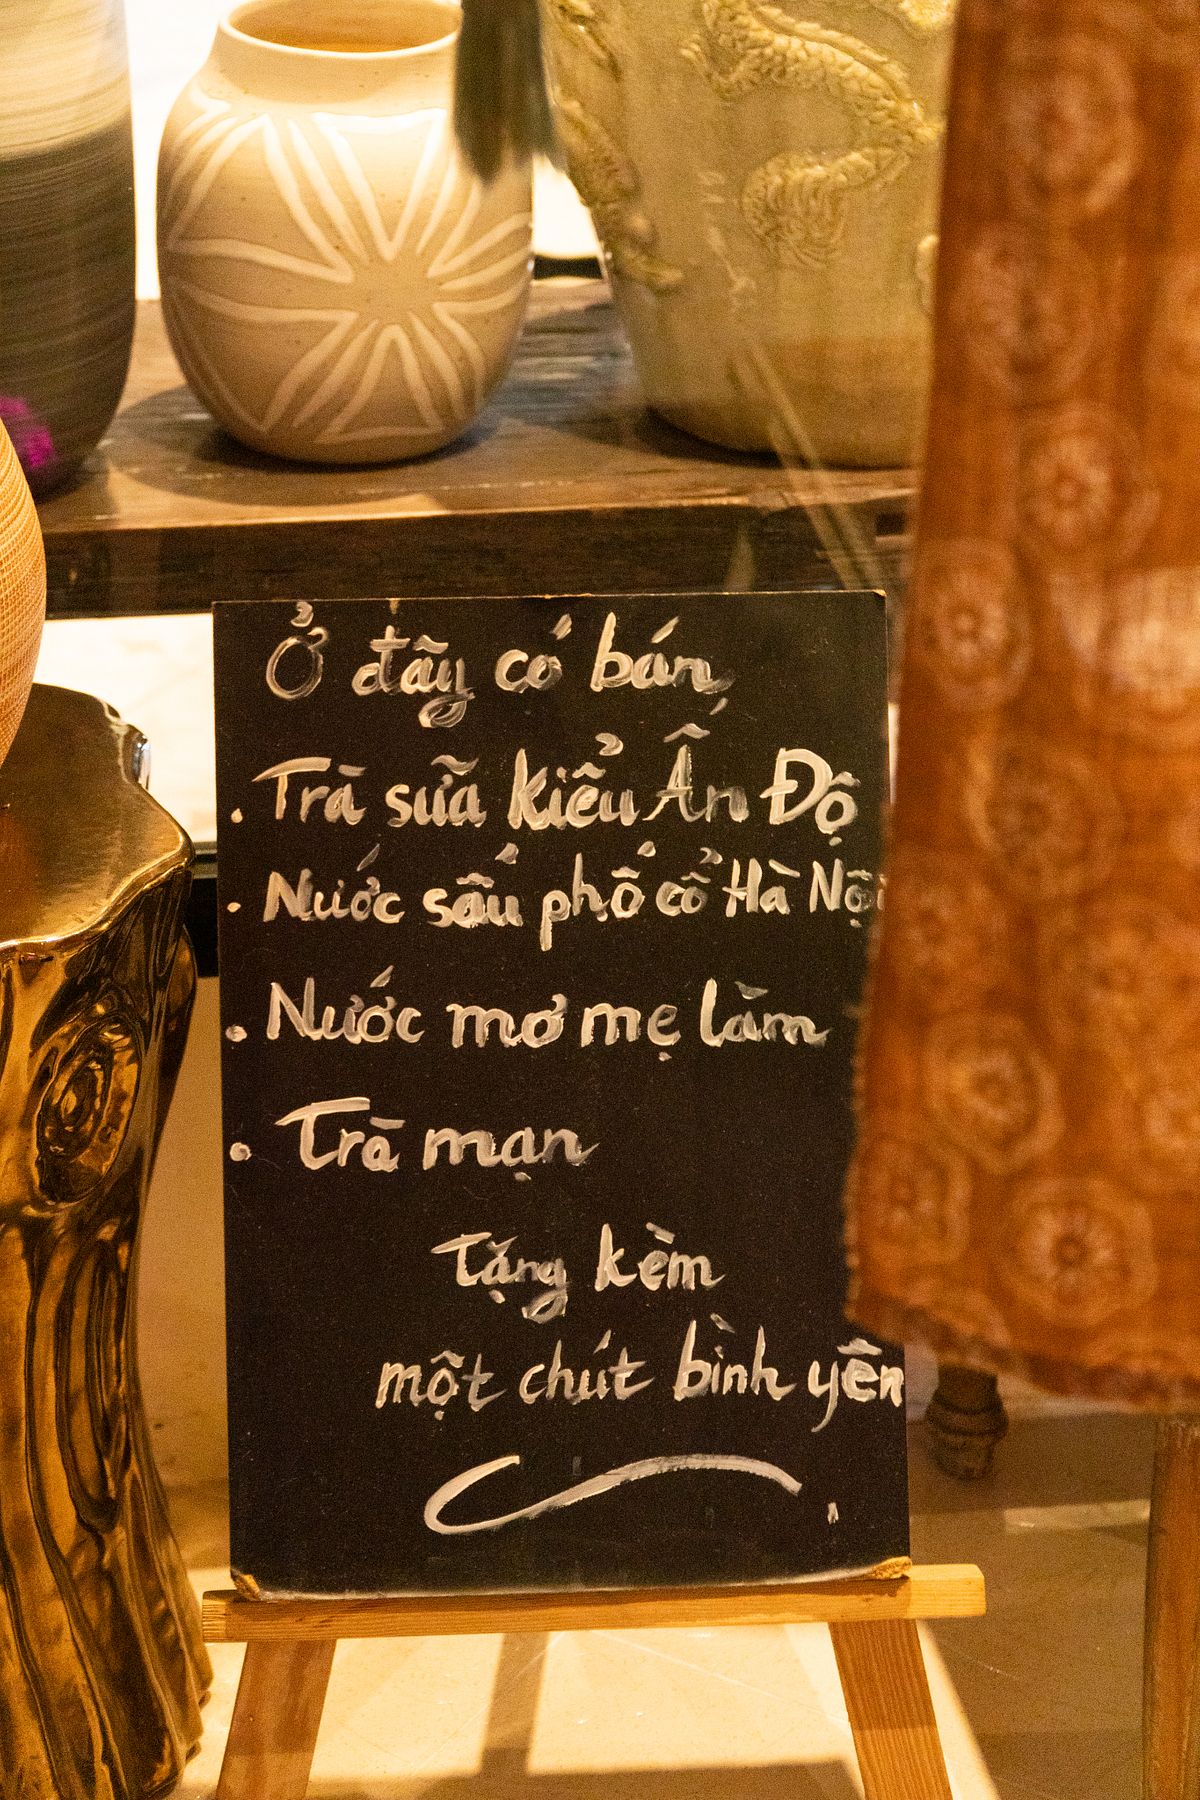 Ở đây có bán
. Trà sữa kiểu Ấn Độ
. Nước sấu phố cổ Hà Nội
. Nước mơ mẹ làm
. Trà mạn
Tặng kèm
một chút bình yên